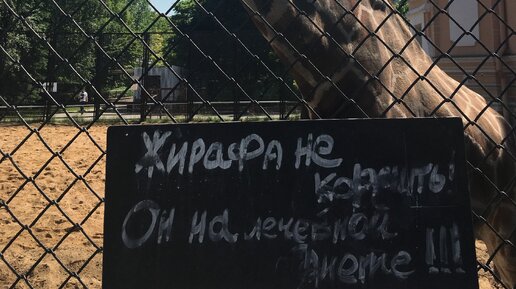 Жирафа не
кормить!
Он на лечебной
диете!!!